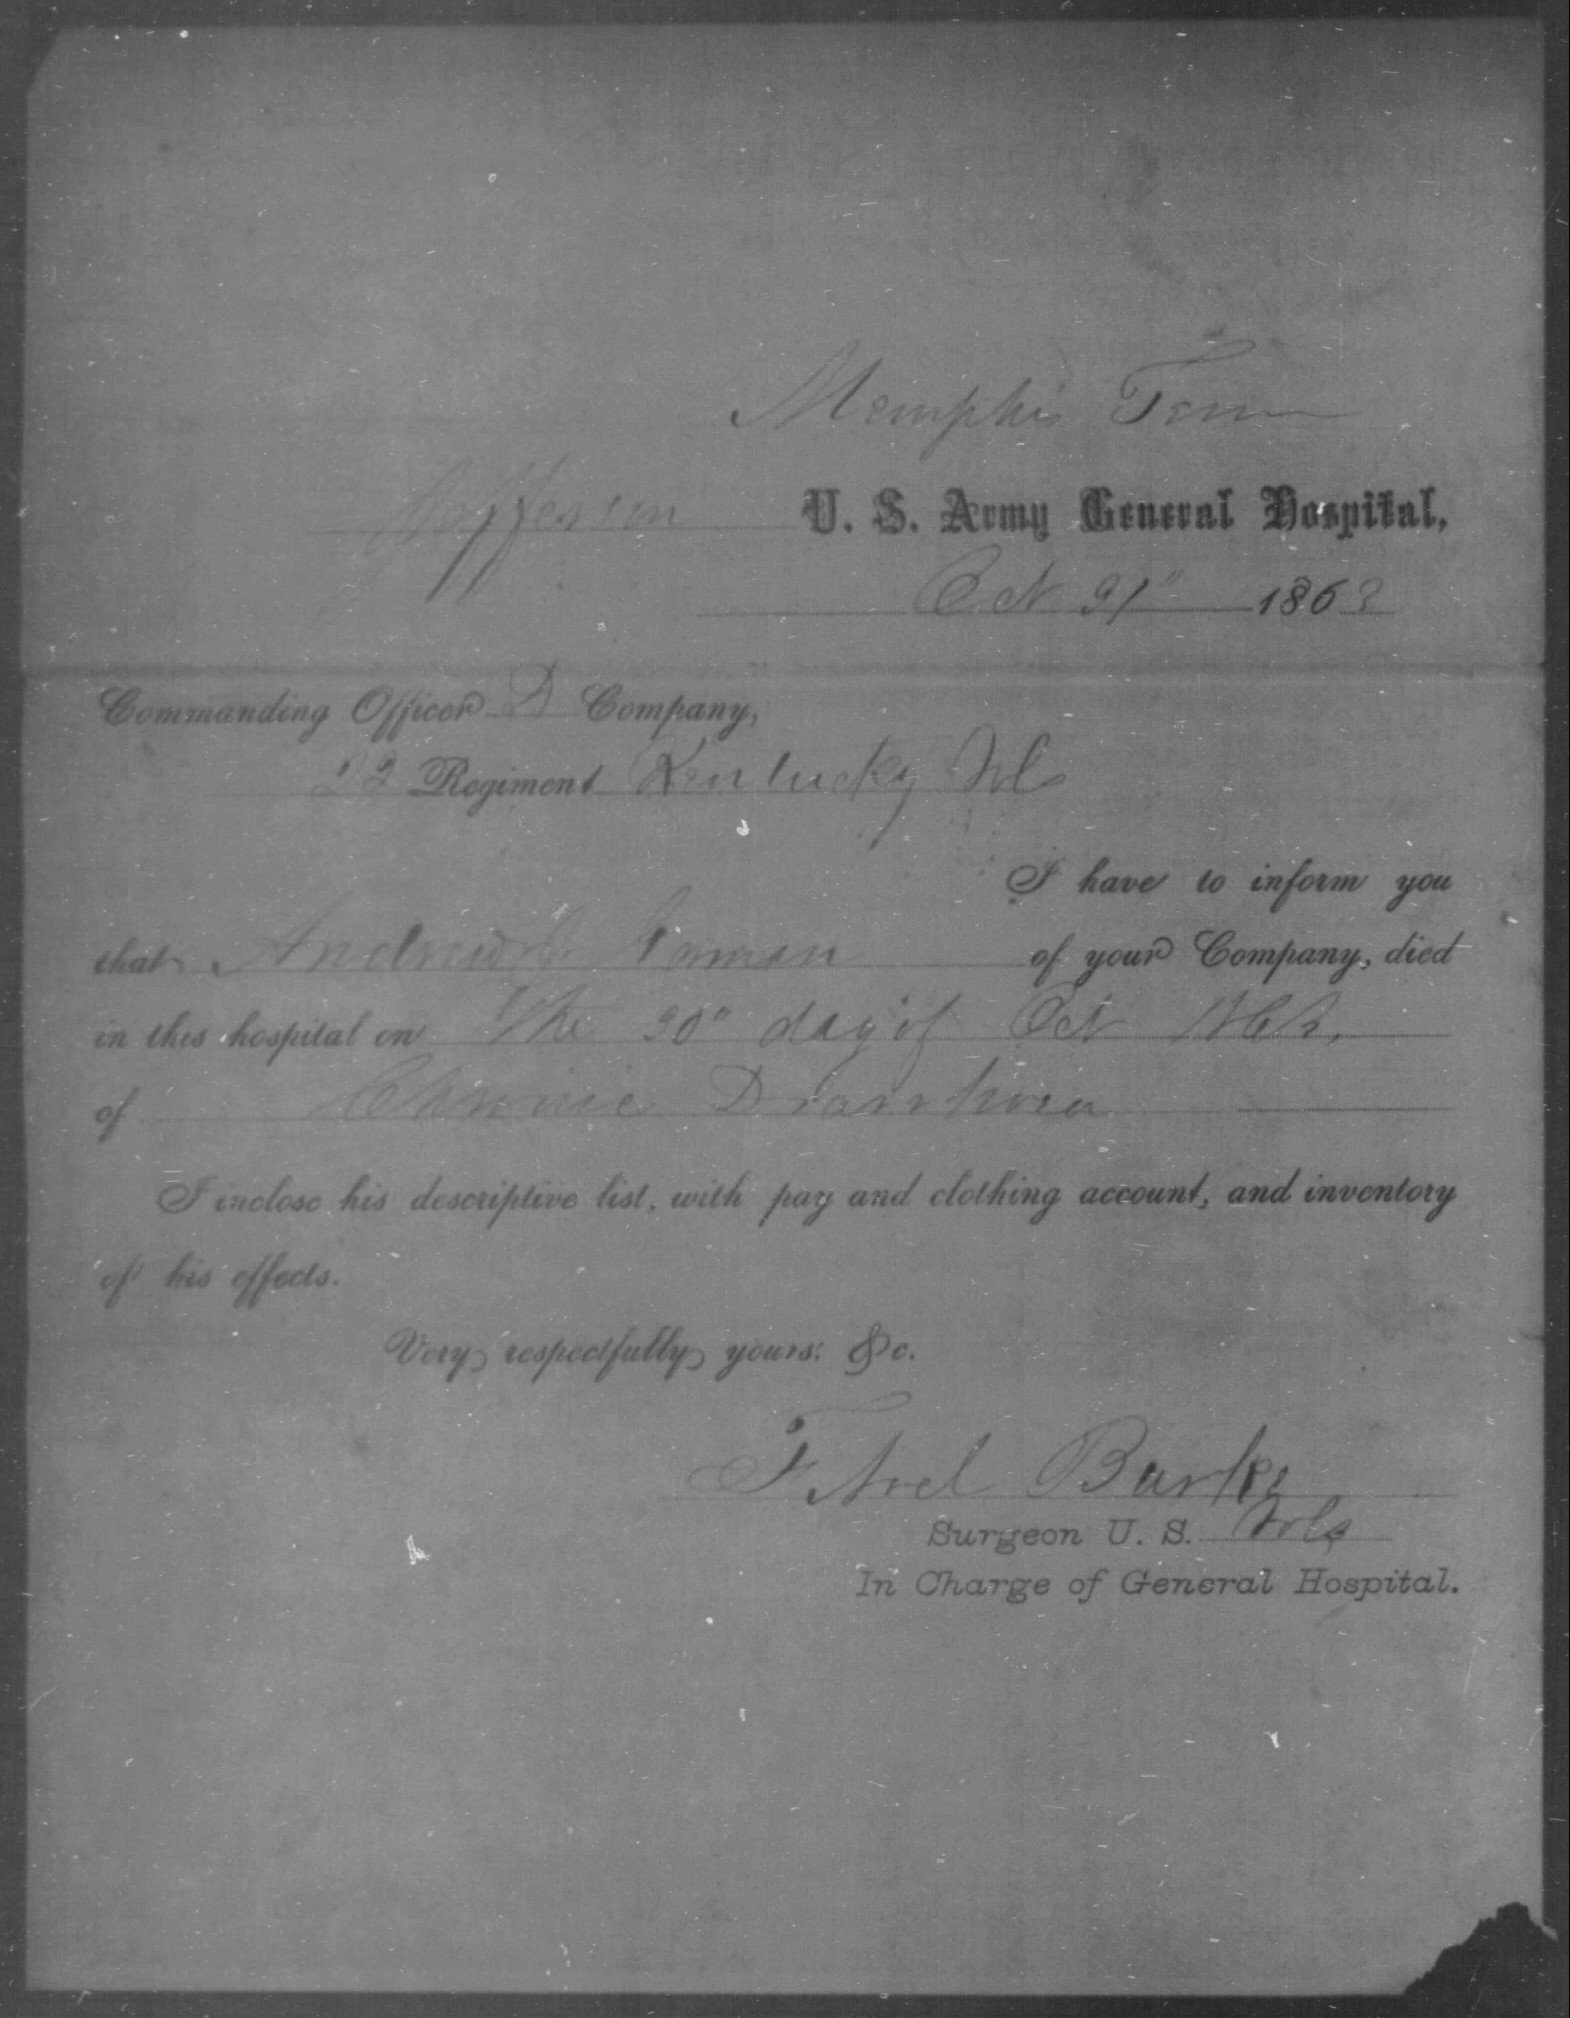 Memphis Tenn
Jefferson U. S. Army General Hospital,
Oct 31" 1863
Commanding Officer D Company,
22 Regiment Kentucky Vols
I have to inform you
that Andrew of your Company, died
in this hospital on The 30" day of Oct 1863,
of Chronic Diarrhoea
I inclose his descriptive list, with pay and clothing account, and inventory
of his effects.
Very respectfully yours: &c.
Burke
Surgeon U. S. Vols
In Charge of General Hospital.